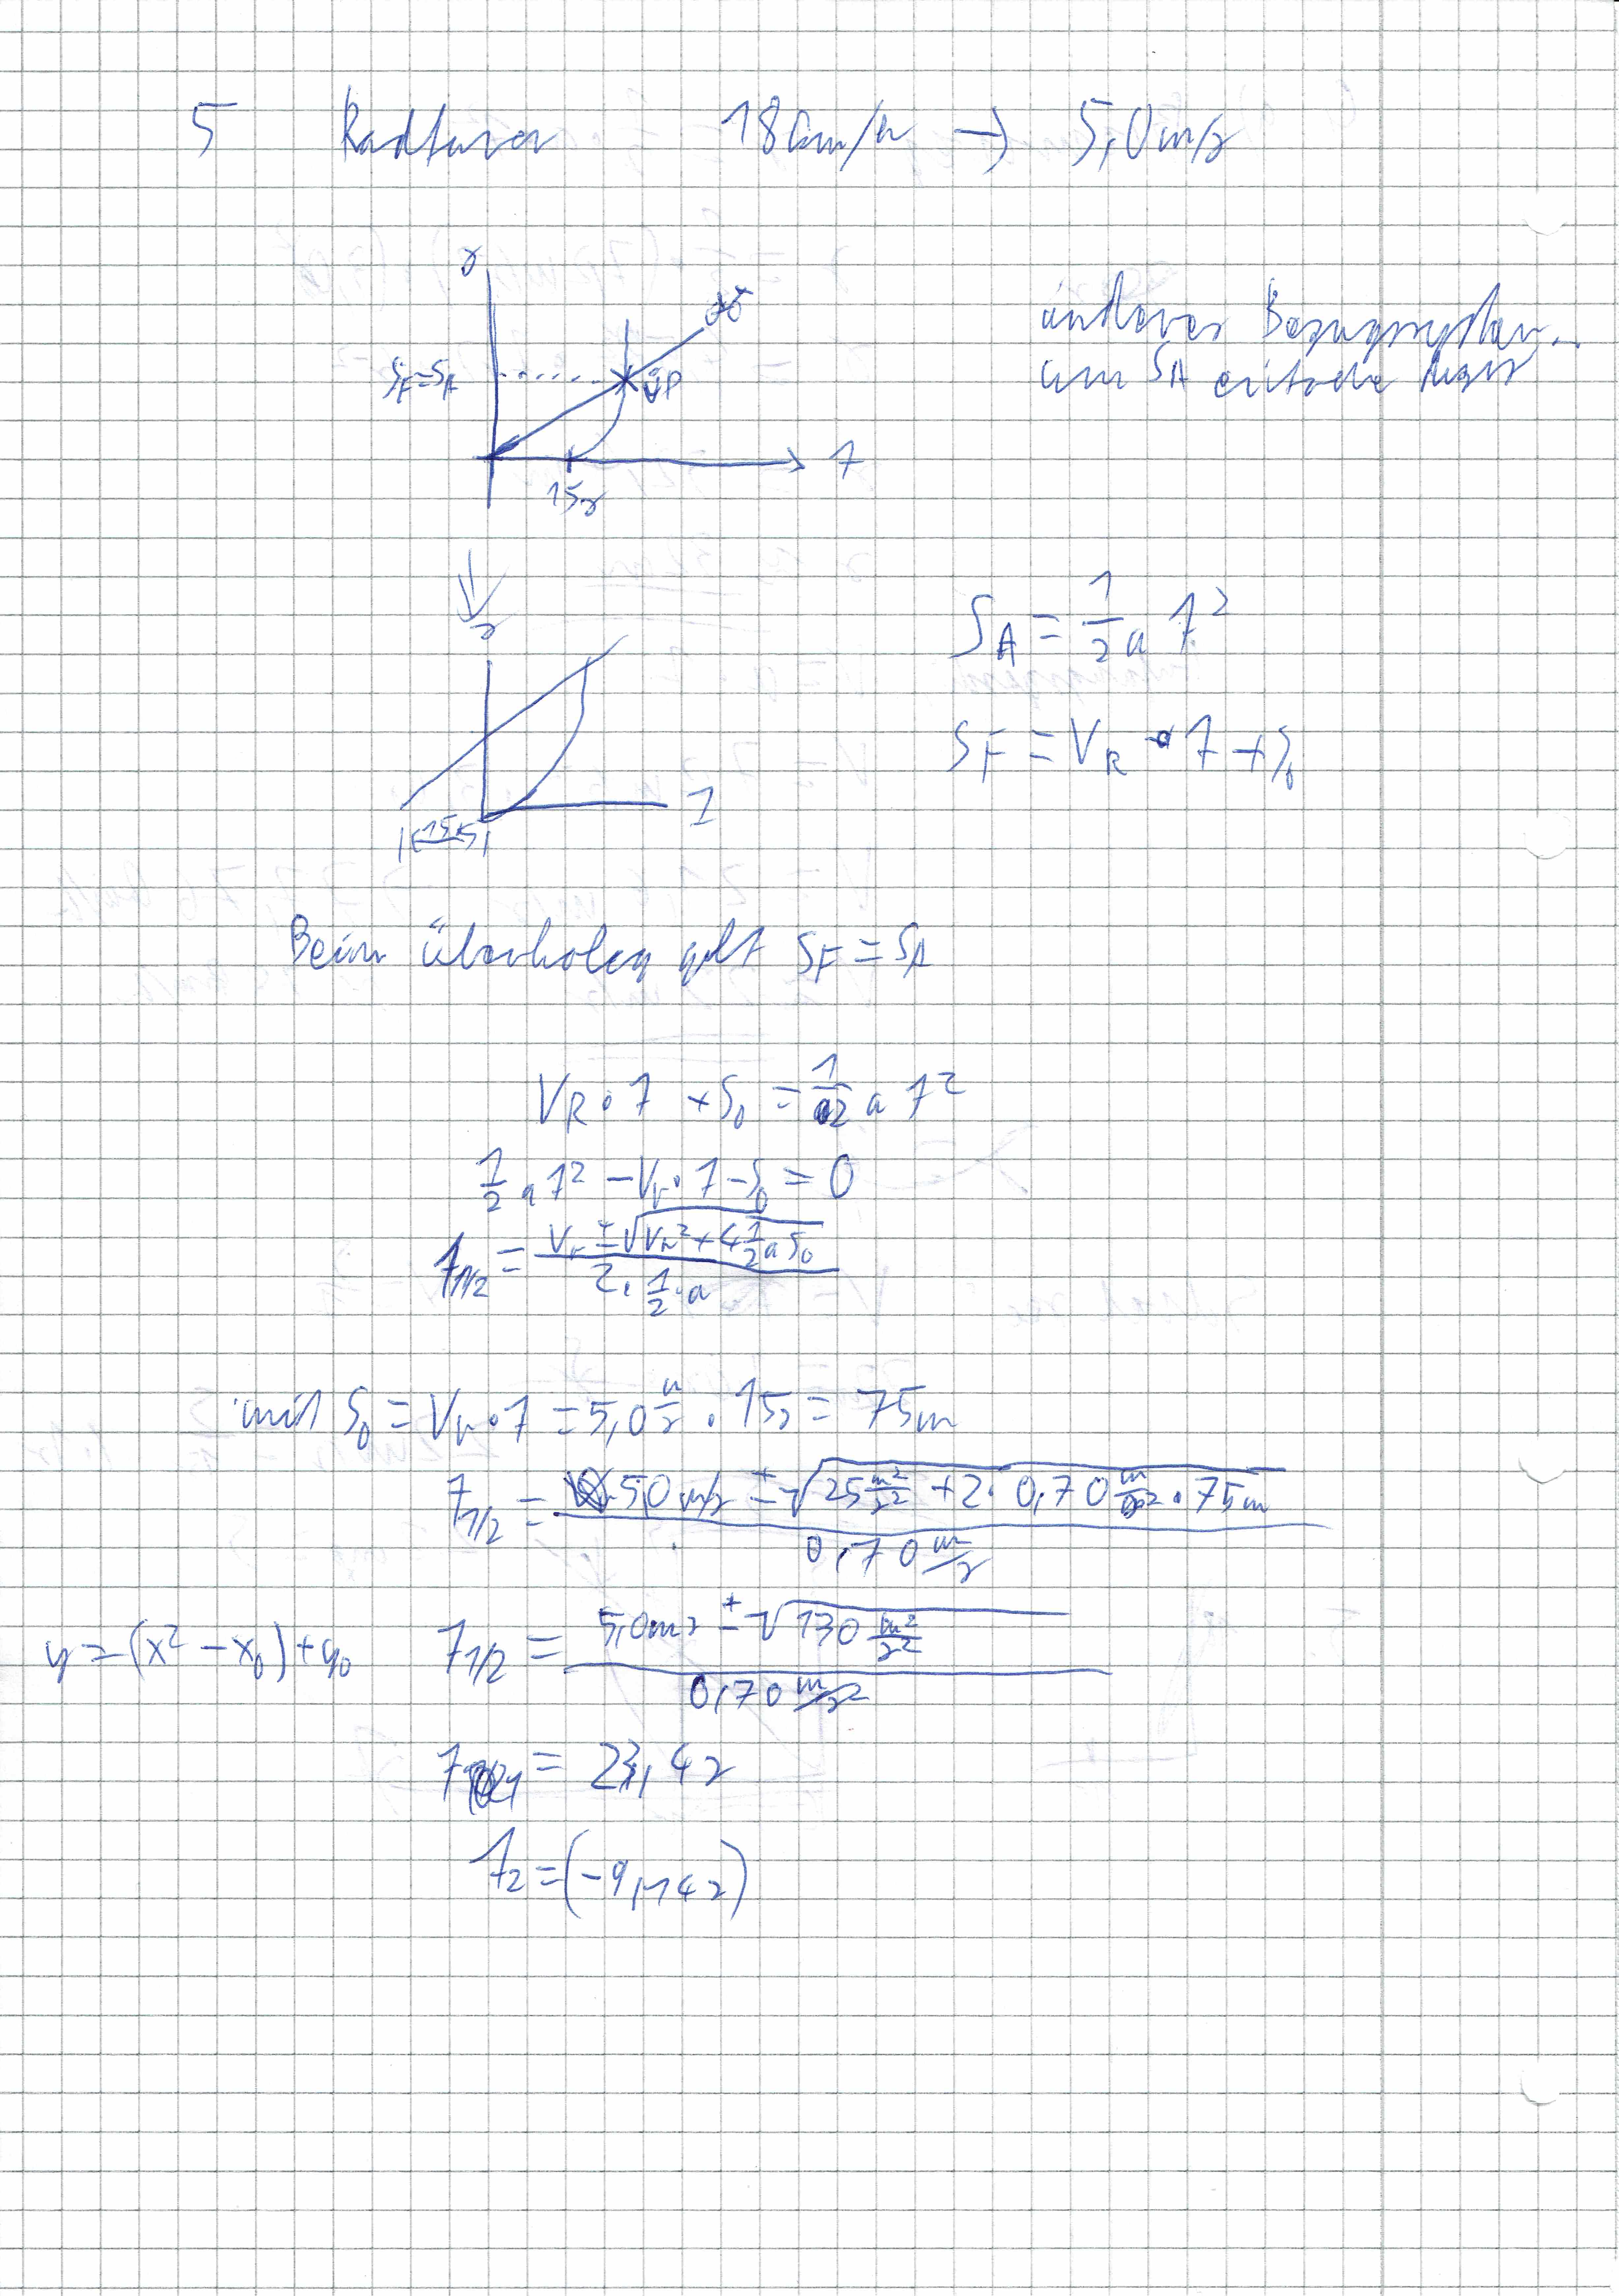 5 Radfahrer 18 km/h → 5,0 m/s
s
anderes Bezugssystem..
um SA
SF = SA
ÜP
t
15s
s
SA = 1/2 a t²
SF = VR · t + S0
t
15s
Beim überholen gilt SF = SA
VR · t + S0 = 1/2 a t²
1/2 a t² - Vr · t - S0 = 0
t1/2 = (Vr ± √(Vr² + 4 1/2 a S0)) / (2 · 1/2 · a)
mit S0 = Vr · t = 5,0 m/s · 15s = 75m
t1/2 = (5,0 m/s ± √(25 m²/s² + 2 · 0,70 m/s² · 75m)) / (0,70 m/s)
y = (x² - x0) + y0 t1/2 = (5,0 m s ± √(130 m²/s²)) / (0,70 m/s²)
t1 = 23,4 s
t2 = (-9,14 s)